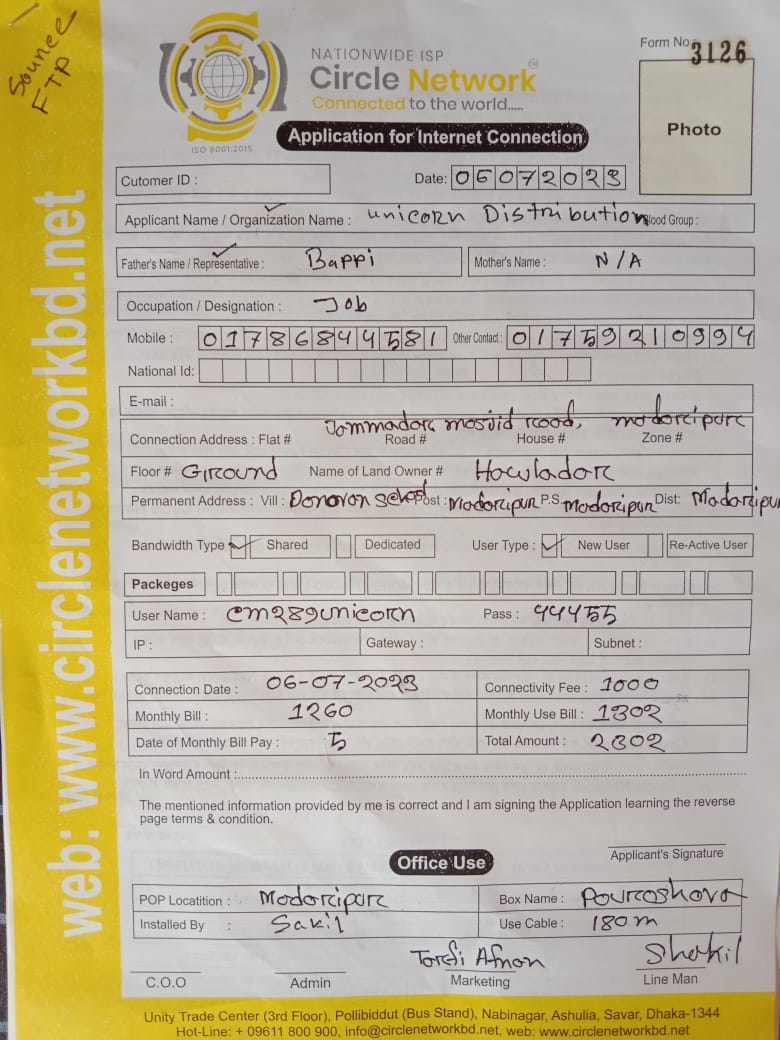 Sounce
FTP
NATIONWIDE ISP
Circle Network
Connected to the world.....
ISO 9001:2015
Form No. 3126
Photo
Application for Internet Connection
Cutomer ID :
Date: 06072023
Applicant Name / Organization Name : unicorn Distribution Blood Group :
Father's Name / Representative : Bappi Mother's Name : N/A
Occupation / Designation : Job
Mobile : 01786844581 Other Contact : 01759210994
National Id:
E-mail :
Jommador mosjid rood, modoripur
Connection Address : Flat # Road # House # Zone #
Floor # Ground Name of Land Owner # Howlador
Permanent Address : Vill : Donovon School Post : Modoripur P.S Modoripur Dist: Modoripur
Bandwidth Type Shared Dedicated User Type : New User Re-Active User
Packeges
User Name : cm289unicorn Pass : 444555
IP : Gateway : Subnet :
Connection Date : 06-07-2023 Connectivity Fee : 1000
Monthly Bill : 1260 Monthly Use Bill : 1302
Date of Monthly Bill Pay : 5 Total Amount : 2302
In Word Amount :
The mentioned information provided by me is correct and I am signing the Application learning the reverse
page terms & condition.
Applicant's Signature
Office Use
POP Locatition : Modoripur Box Name : Pouroshova
Installed By : Sakil Use Cable : 180m
Afnan Shakil
C.O.O Admin Marketing Line Man
Unity Trade Center (3rd Floor), Pollibiddut (Bus Stand), Nabinagar, Ashulia, Savar, Dhaka-1344
Hot-Line: + 09611 800 900, info@circlenetworkbd.net, web: www.circlenetworkbd.net
web: www.circlenetworkbd.net